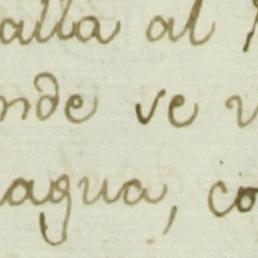 alla al
nde se v
agua, co